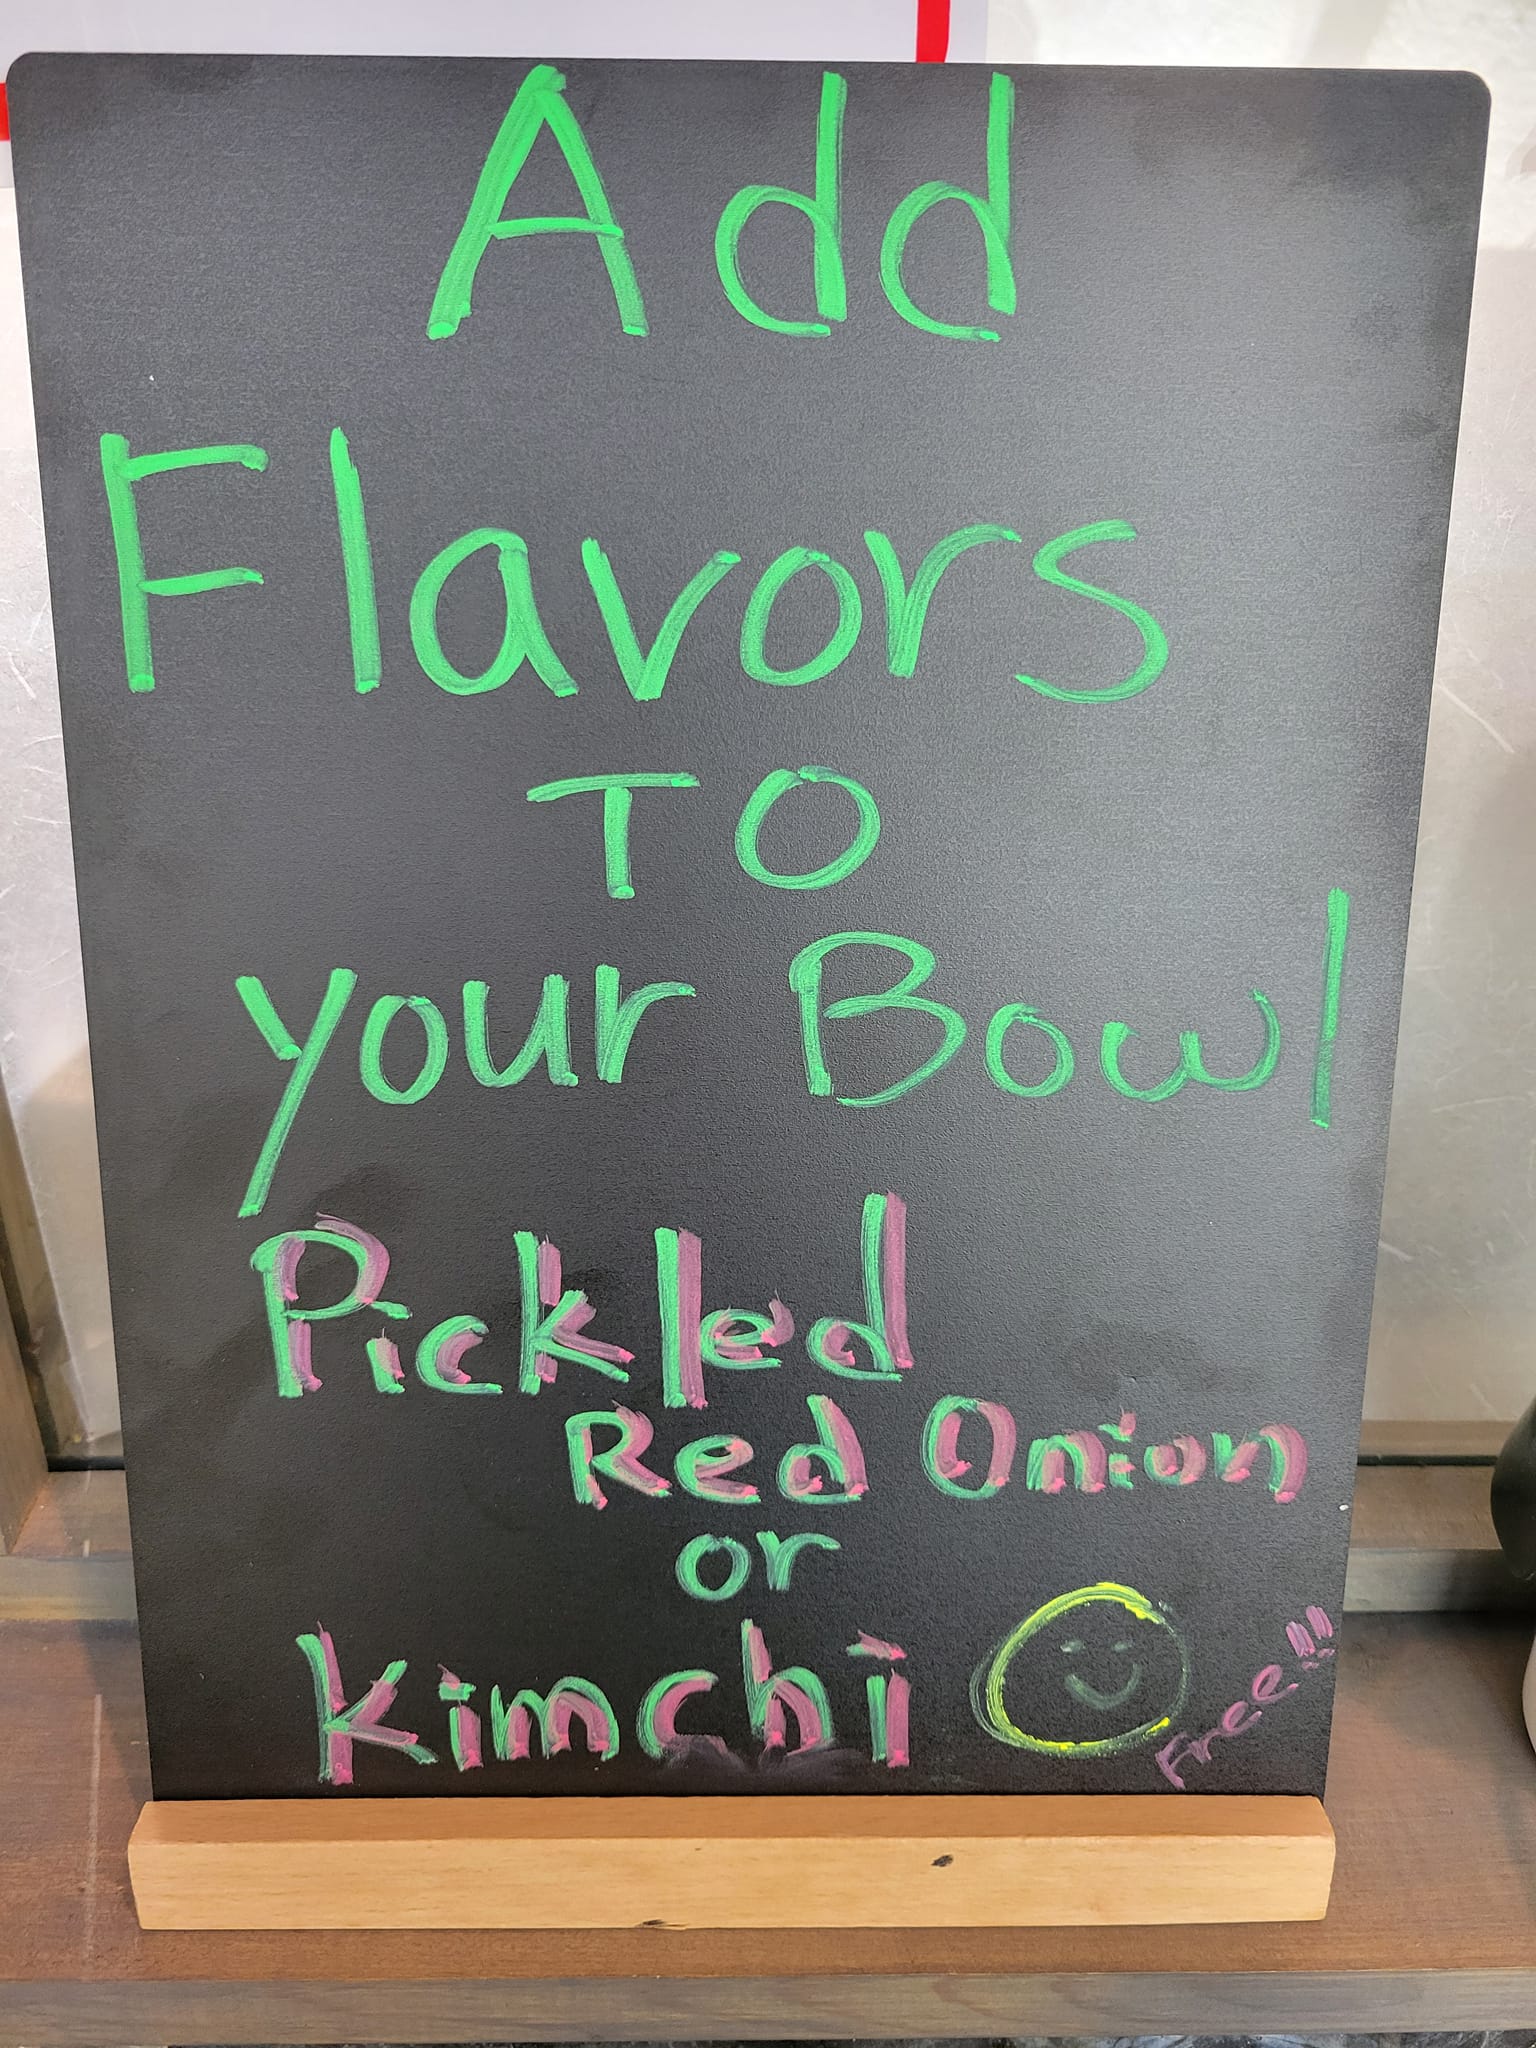 Add
Flavors
TO
your Bowl
Pickled
Red Onion
or
Kimchi
Free!!